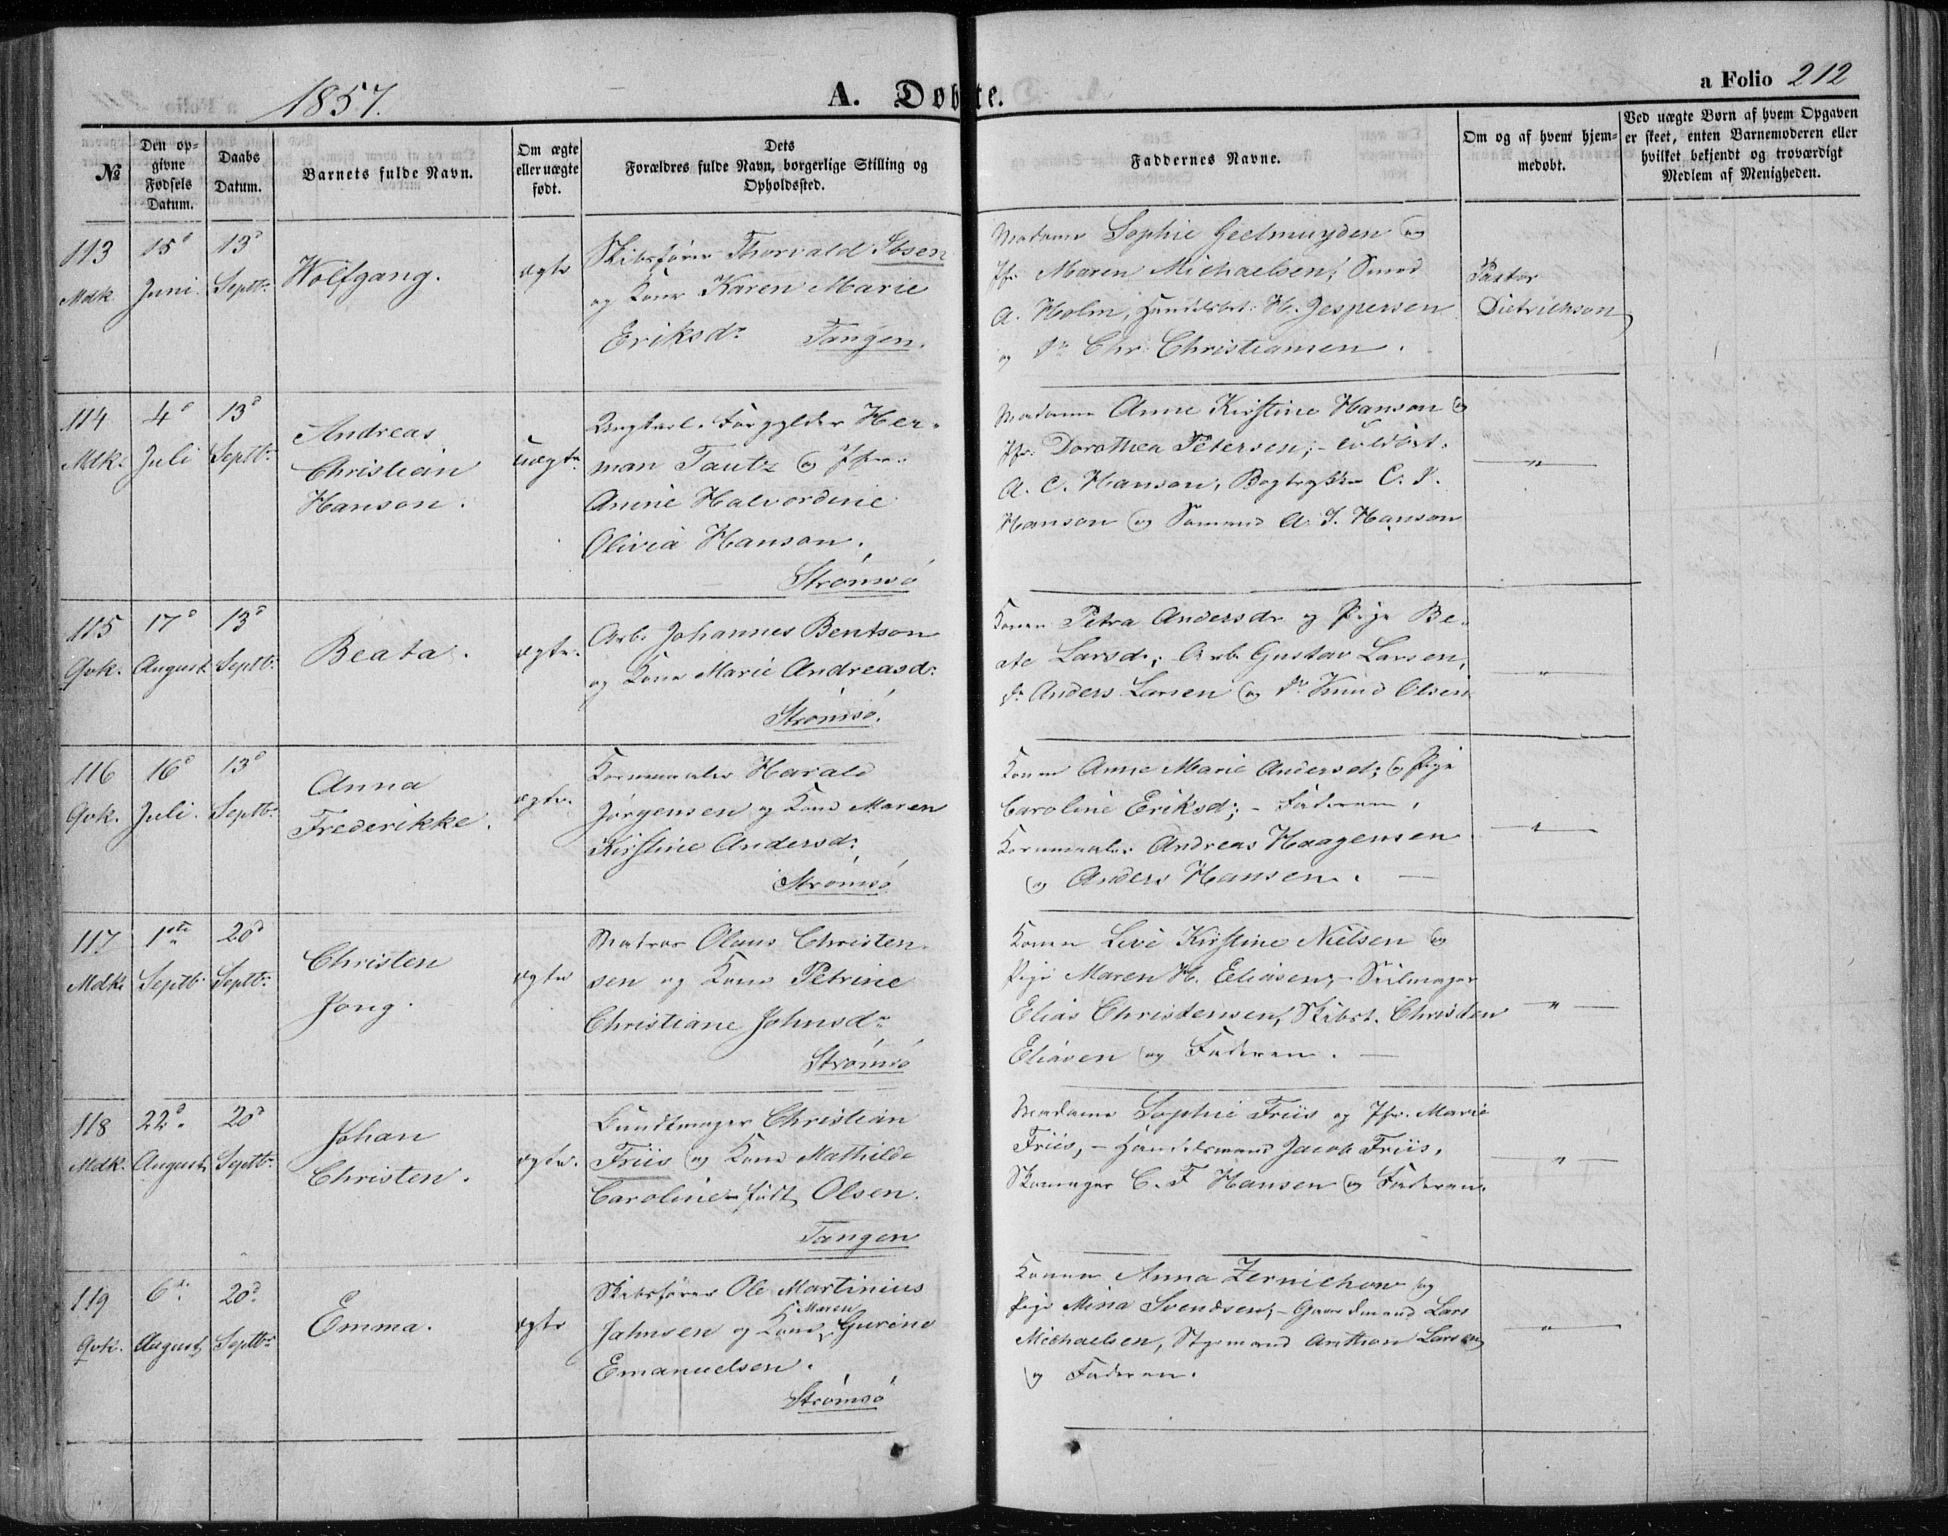 1857.
A. Døbte.
a Folio 212
№
Den opgivne Fødsels Datum.
Daabs Datum.
Barnets fulde Navn.
Om ægte eller uægte født.
Dets Forældres fulde Navn, borgerlige Stilling og Opholdssted.
Faddernes Navne.
Om og af hvem hjemmedøbt.
Ved uægte Børn af hvem Opgaven er skeet, enten Barnemoderen eller hvilket bekjendt og troværdigt Medlem af Menigheden.
113
Mdk.
15d
Juni.
13d
Septbr.
Wolfgang.
ægte
Skibsfører Thorvald Ibsen
og Kone Karen Marie
Eriksdr. Tangen.
Madame Sophie Geelmuyden og
Jfr. Maren Michaelsen, Smed
A. Holm, Handelsbet. H. Jespersen
og do Chr. Christiansen.
Pastor
Dietrichson
114
Mdk.
4d
Juli
13d
Septbr.
Andreas
Christian
Hanson.
uægte.
Ungkarl. Forgylder Her-
man Tautz og Jfr.
Anine Halvordine
Olivia Hanson.
Strømsø
Madame Anne Kirstine Hanson og
Jfr. Dorothea Petersen; - Toldbet.
A. C. Hanson, Bogtrykker C. P.
Hanson og Sømand A. J. Hanson
"
115
Qvk.
17d
August
13d
Septbr.
Beata.
ægte.
Arb. Johannes Bentson
og Kone Marie Andreasd:
Strømsø.
Konen Petra Andersdr og Pige Be-
ate Larsd; Arb. Gustav Larsen,
do Anders Larsen og do Knud Olsen
"
116
Qvk.
16d
Juli.
13d
Septbr.
Anna
Frederikke.
ægte.
Kornmaaler Harald
Jørgensen og Kone Maren
Kirstine Andersd:
Strømsø
Konen Anne Marie Andersd; og Pige
Caroline Eriksd; - Faderen,
Kornmaaler Andreas Haagensen
og Anders Hansen.
"
117
Mdk.
1ste
Septbr
20d
Septbr:
Christen
Jong.
ægte
Matros Olaus Christen-
sen og Kone Petrine
Christiane Johnsdr
Strømsø
Konen Live Kirstine Nielsen og
Pige Maren H. Eliasen, - Seilmager
Elias Christensen, Skibst. Christen
Eliasen og Faderen.
"
118
Mdk.
22d
August
20d
Septbr.
Johan
Christen.
ægte.
Bundtmager Christian
Friis og Kone Mathilde
Caroline født Olsen.
Tangen
Madame Sophie Friis og Jfr. Marie
Friis, - Handelsmand Jacob Friis,
Skomager C. F Hansen og Faderen.
"
119
Qvk.
6te
August
20d
Septbr
Emma.
ægte
Skibsfører Ole Martinius
Jahnsen og Kone Maren Gurine
Emanuelsen.
Strømsø
Konen Anna Zernichow og
Pige Mina Svendsen, - Gaardmand Lars
Michaelsen, Styrmand Anthon Larsen
og Faderen.
"